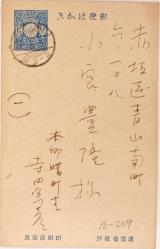 郵便はかき
赤坂區青山南町
六ノ一〇八
小宮豊隆様
(一)
本郷曙町十三
寺田寅彦
印刷局製造
逓信省発行